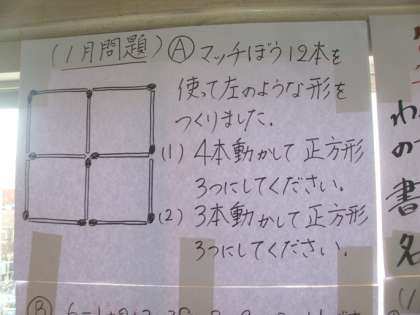 (1月問題) Ⓐ マッチぼう12本を
使って左のような形を
つくりました.
(1) 4本動かして 正方形
3つにしてください.
(2) 3本動かして 正方形
3つにしてください.
Ⓑ
わ
の
書
名